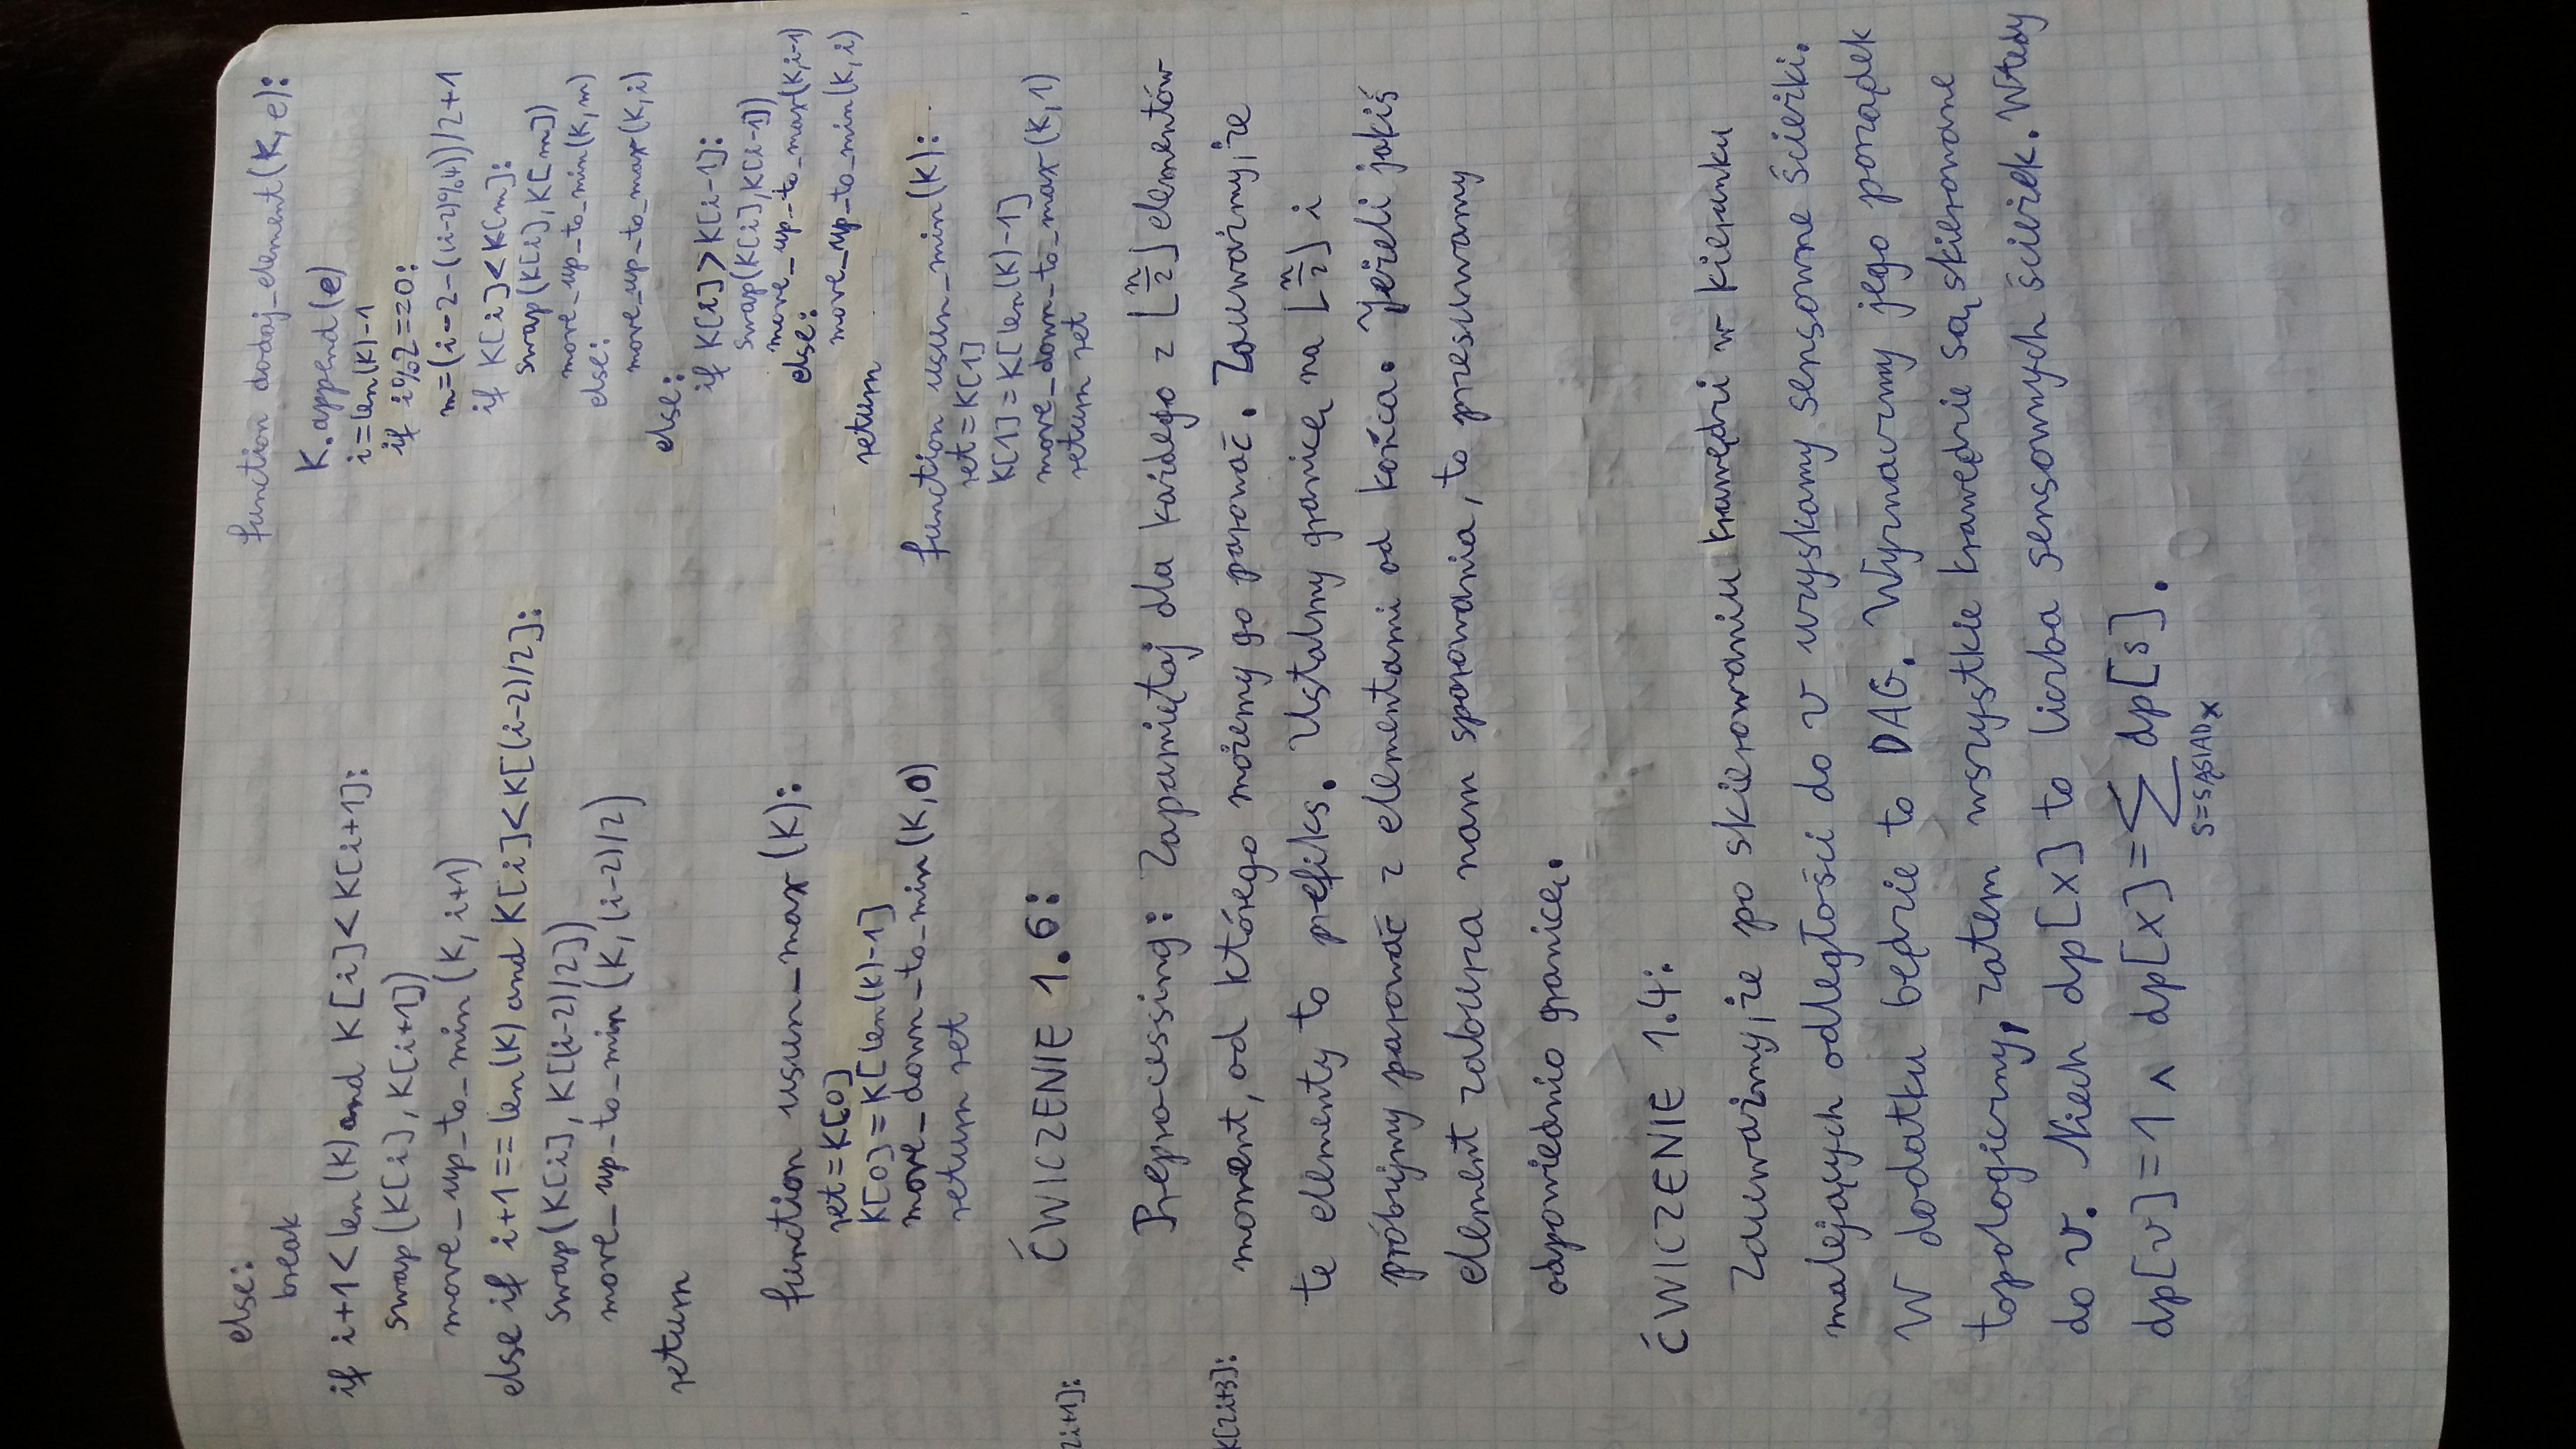 else:
break
if i+1<len(K) and K[i]<K[i+1]:
swap(K[i], K[i+1])
move_up_to_min(K, i+1)
else if i+1==len(K) and K[i]<K[(i-2)/2]:
swap(K[i], K[(i-2)/2])
move_up_to_min(K, (i-2)/2)
return
function usun_max(K):
ret=K[0]
K[0]=K[len(K)-1]
move_down_to_min(K,0)
return ret
function dodaj_element(K, e):
K.append(e)
i=len(K)-1
if i%2==0:
m=(i-2-((i-2)%4))/2+1
if K[i]<K[m]:
swap(K[i], K[m])
move_up_to_min(K, m)
else:
move_up_to_max(K, i)
else:
if K[i]>K[i-1]:
swap(K[i],K[i-1])
move_up_to_max(K,i-1)
else:
move_up_to_min(K, i)
return
function usun_min(K):
ret=K[1]
K[1]=K[len(K)-1]
move_down_to_max(K,1)
return ret
2i+1]:
K[2i+3]:
ĆWICZENIE 1.6:
Preprocessing: Zapamiętaj dla każdego z ⌊n/2⌋ elementów
moment, od którego możemy go parować. Zauważmy, że
te elementy to prefiks. Ustalmy granicę na ⌊n/2⌋ i
próbujmy parować z elementami od końca. Jeżeli jakiś
element zaburza nam sparowania, to przesuwamy
odpowiednio granicę.
ĆWICZENIE 1.4:
Zauważmy, że po skierowaniu krawędzi w kierunku
malejących odległości do v uzyskamy sensowne ścieżki.
W dodatku będzie to DAG. Wyznaczmy jego porządek
topologiczny, zatem wszystkie krawędzie są skierowane
do v. Niech dp[x] to liczba sensownych ścieżek. Wtedy
dp[v]=1 ∧ dp[x]=∑ dp[s].
s=SĄSIAD x